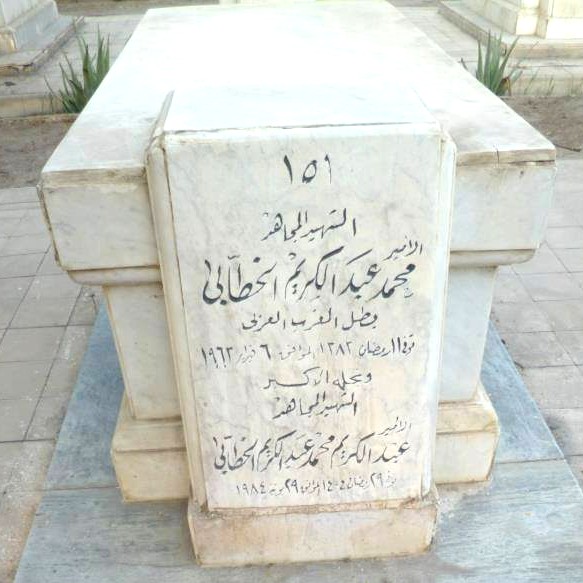 ١٥١
الشهيد المجاهد
الأمير
محمد عبد الكريم الخطابي
بطل المغرب العربي
توفى ١١ رمضان ١٣٨٢ الموافق ٦ فبراير ١٩٦٣
ونجله الأكبر
الشهيد المجاهد
الأمير
عبد الكريم محمد عبد الكريم الخطابي
٢٩ رمضان ١٤٠٤ الموافق ٢٩ يونية ١٩٨٤